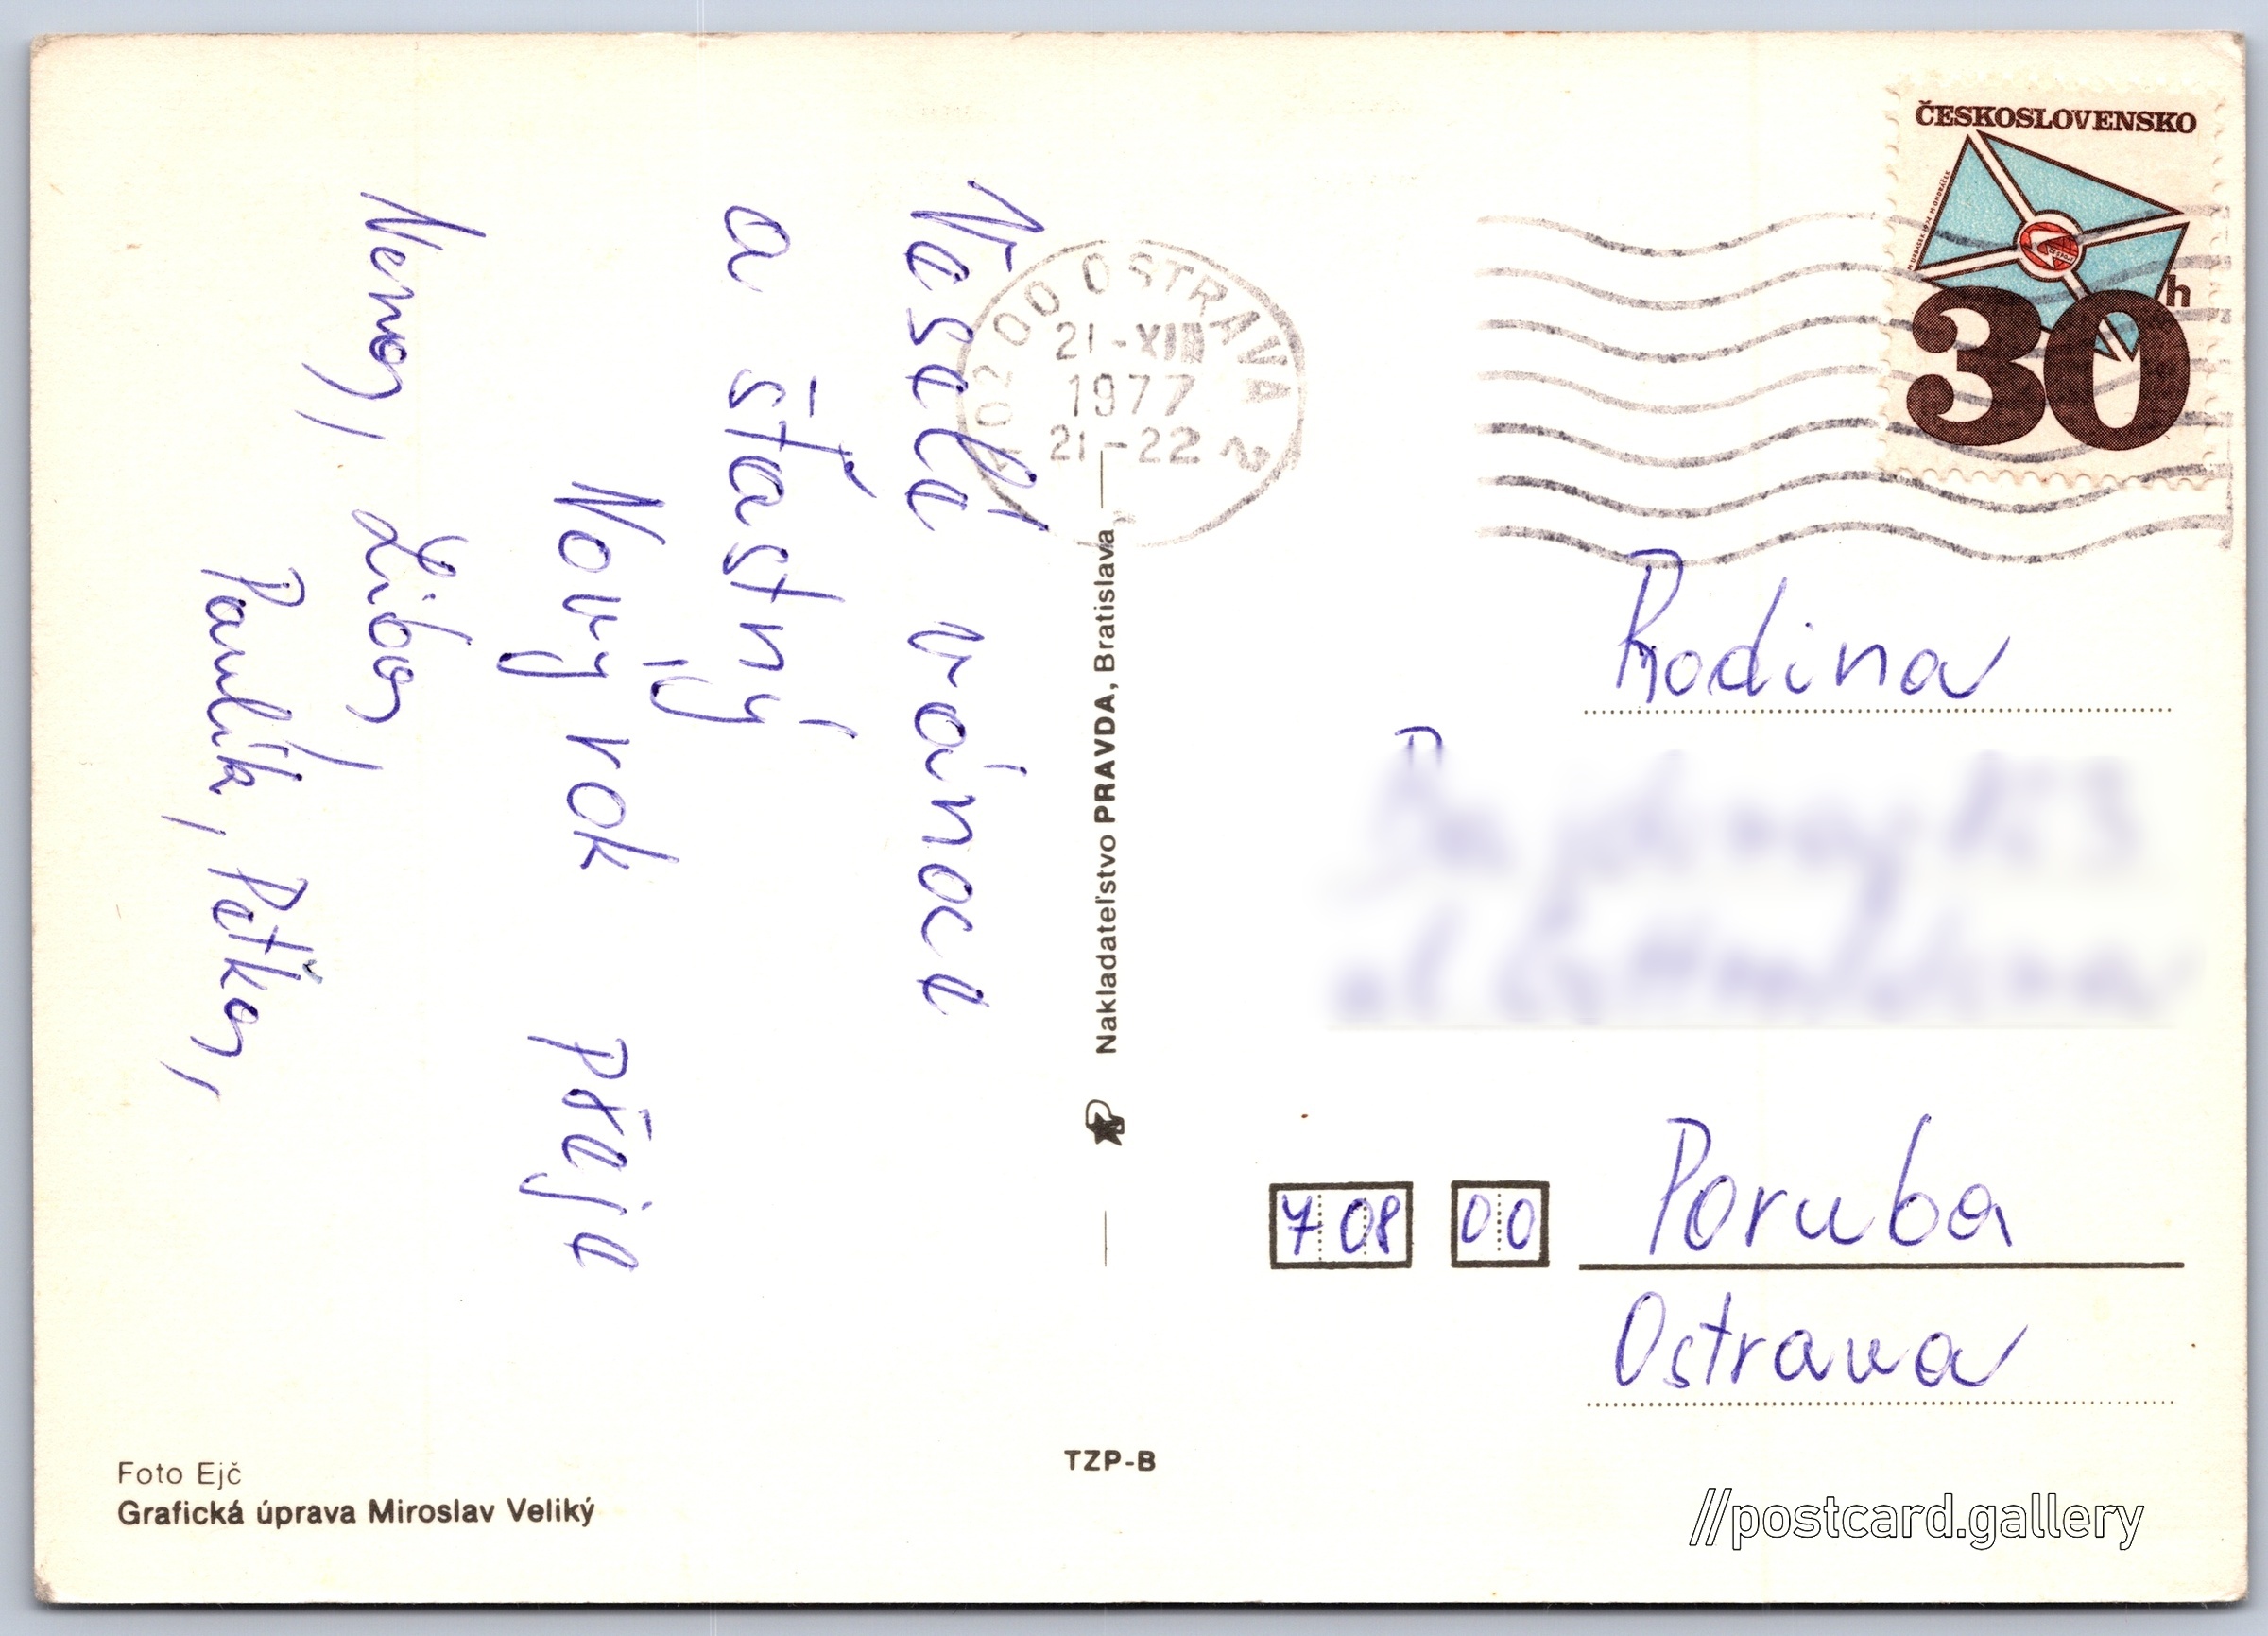 Veselé vánoce
a šťastný
Nový rok přeje
Nema, Liba,
Pavlík, Peťka,
Nakladateľstvo PRAVDA, Bratislava
702 00 OSTRAVA 2
21-XII
1977
21-22
ČESKOSLOVENSKO
30
h
Rodina
708 00 Poruba
Ostrava
TZP-B
Foto Ejč
Grafická úprava Miroslav Veliký
//postcard.gallery